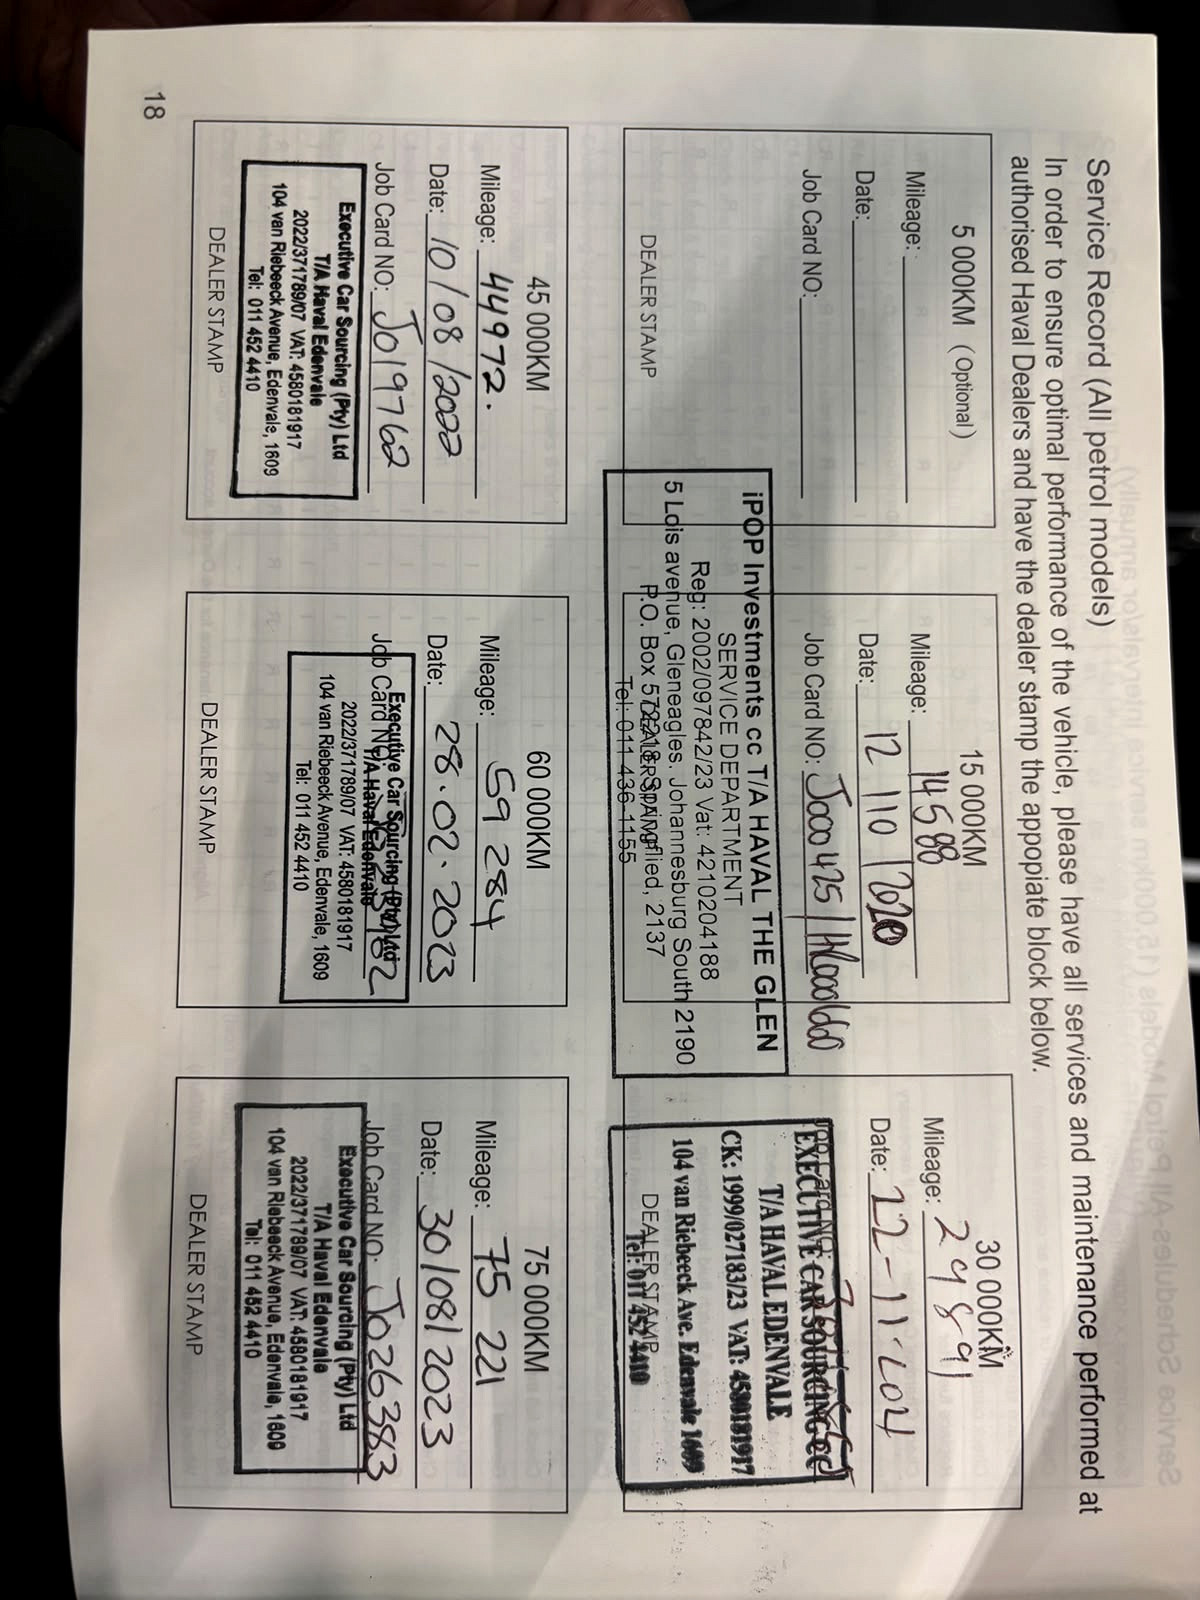 Service Record (All petrol models)
In order to ensure optimal performance of the vehicle, please have all services and maintenance performed at
authorised Haval Dealers and have the dealer stamp the appopiate block below.
5 000KM (Optional)
Mileage:
Date:
Job Card NO:
DEALER STAMP
15 000KM
Mileage: 14588
Date: 12/10/2020
Job Card NO:
iPOP Investments cc T/A HAVAL THE GLEN
SERVICE DEPARTMENT
Reg: 2002/097842/23 Vat: 4210204188
5 Lois avenue, Gleneagles. Johannesburg South 2190
P.O. Box 2137
Tel: 011 436 1155
DEALER STAMP
30 000KM
Mileage: 29891
Date:
Job Card NO:
EXECUTIVE CAR SOURCING cc
T/A HAVAL EDENVALE
CK: 1999/027183/23 VAT: 4580181917
104 van Riebeeck Ave. Edenvale 1609
Tel: 011 452 4410
DEALER STAMP
45 000KM
Mileage: 44972.
Date: 10/08/2022
Job Card NO: J019762
Executive Car Sourcing (Pty) Ltd
T/A Haval Edenvale
2022/371789/07 VAT: 4580181917
104 van Riebeeck Avenue, Edenvale, 1609
Tel: 011 452 4410
DEALER STAMP
60 000KM
Mileage: 59 284
Date: 28.02.2023
Job Card NO:
Executive Car Sourcing (Pty) Ltd
T/A Haval Edenvale
2022/371789/07 VAT: 4580181917
104 van Riebeeck Avenue, Edenvale, 1609
Tel: 011 452 4410
DEALER STAMP
75 000KM
Mileage: 75 221
Date: 30/08/2023
Job Card NO: J026383
Executive Car Sourcing (Pty) Ltd
T/A Haval Edenvale
2022/371789/07 VAT: 4580181917
104 van Riebeeck Avenue, Edenvale, 1609
Tel: 011 452 4410
DEALER STAMP
18